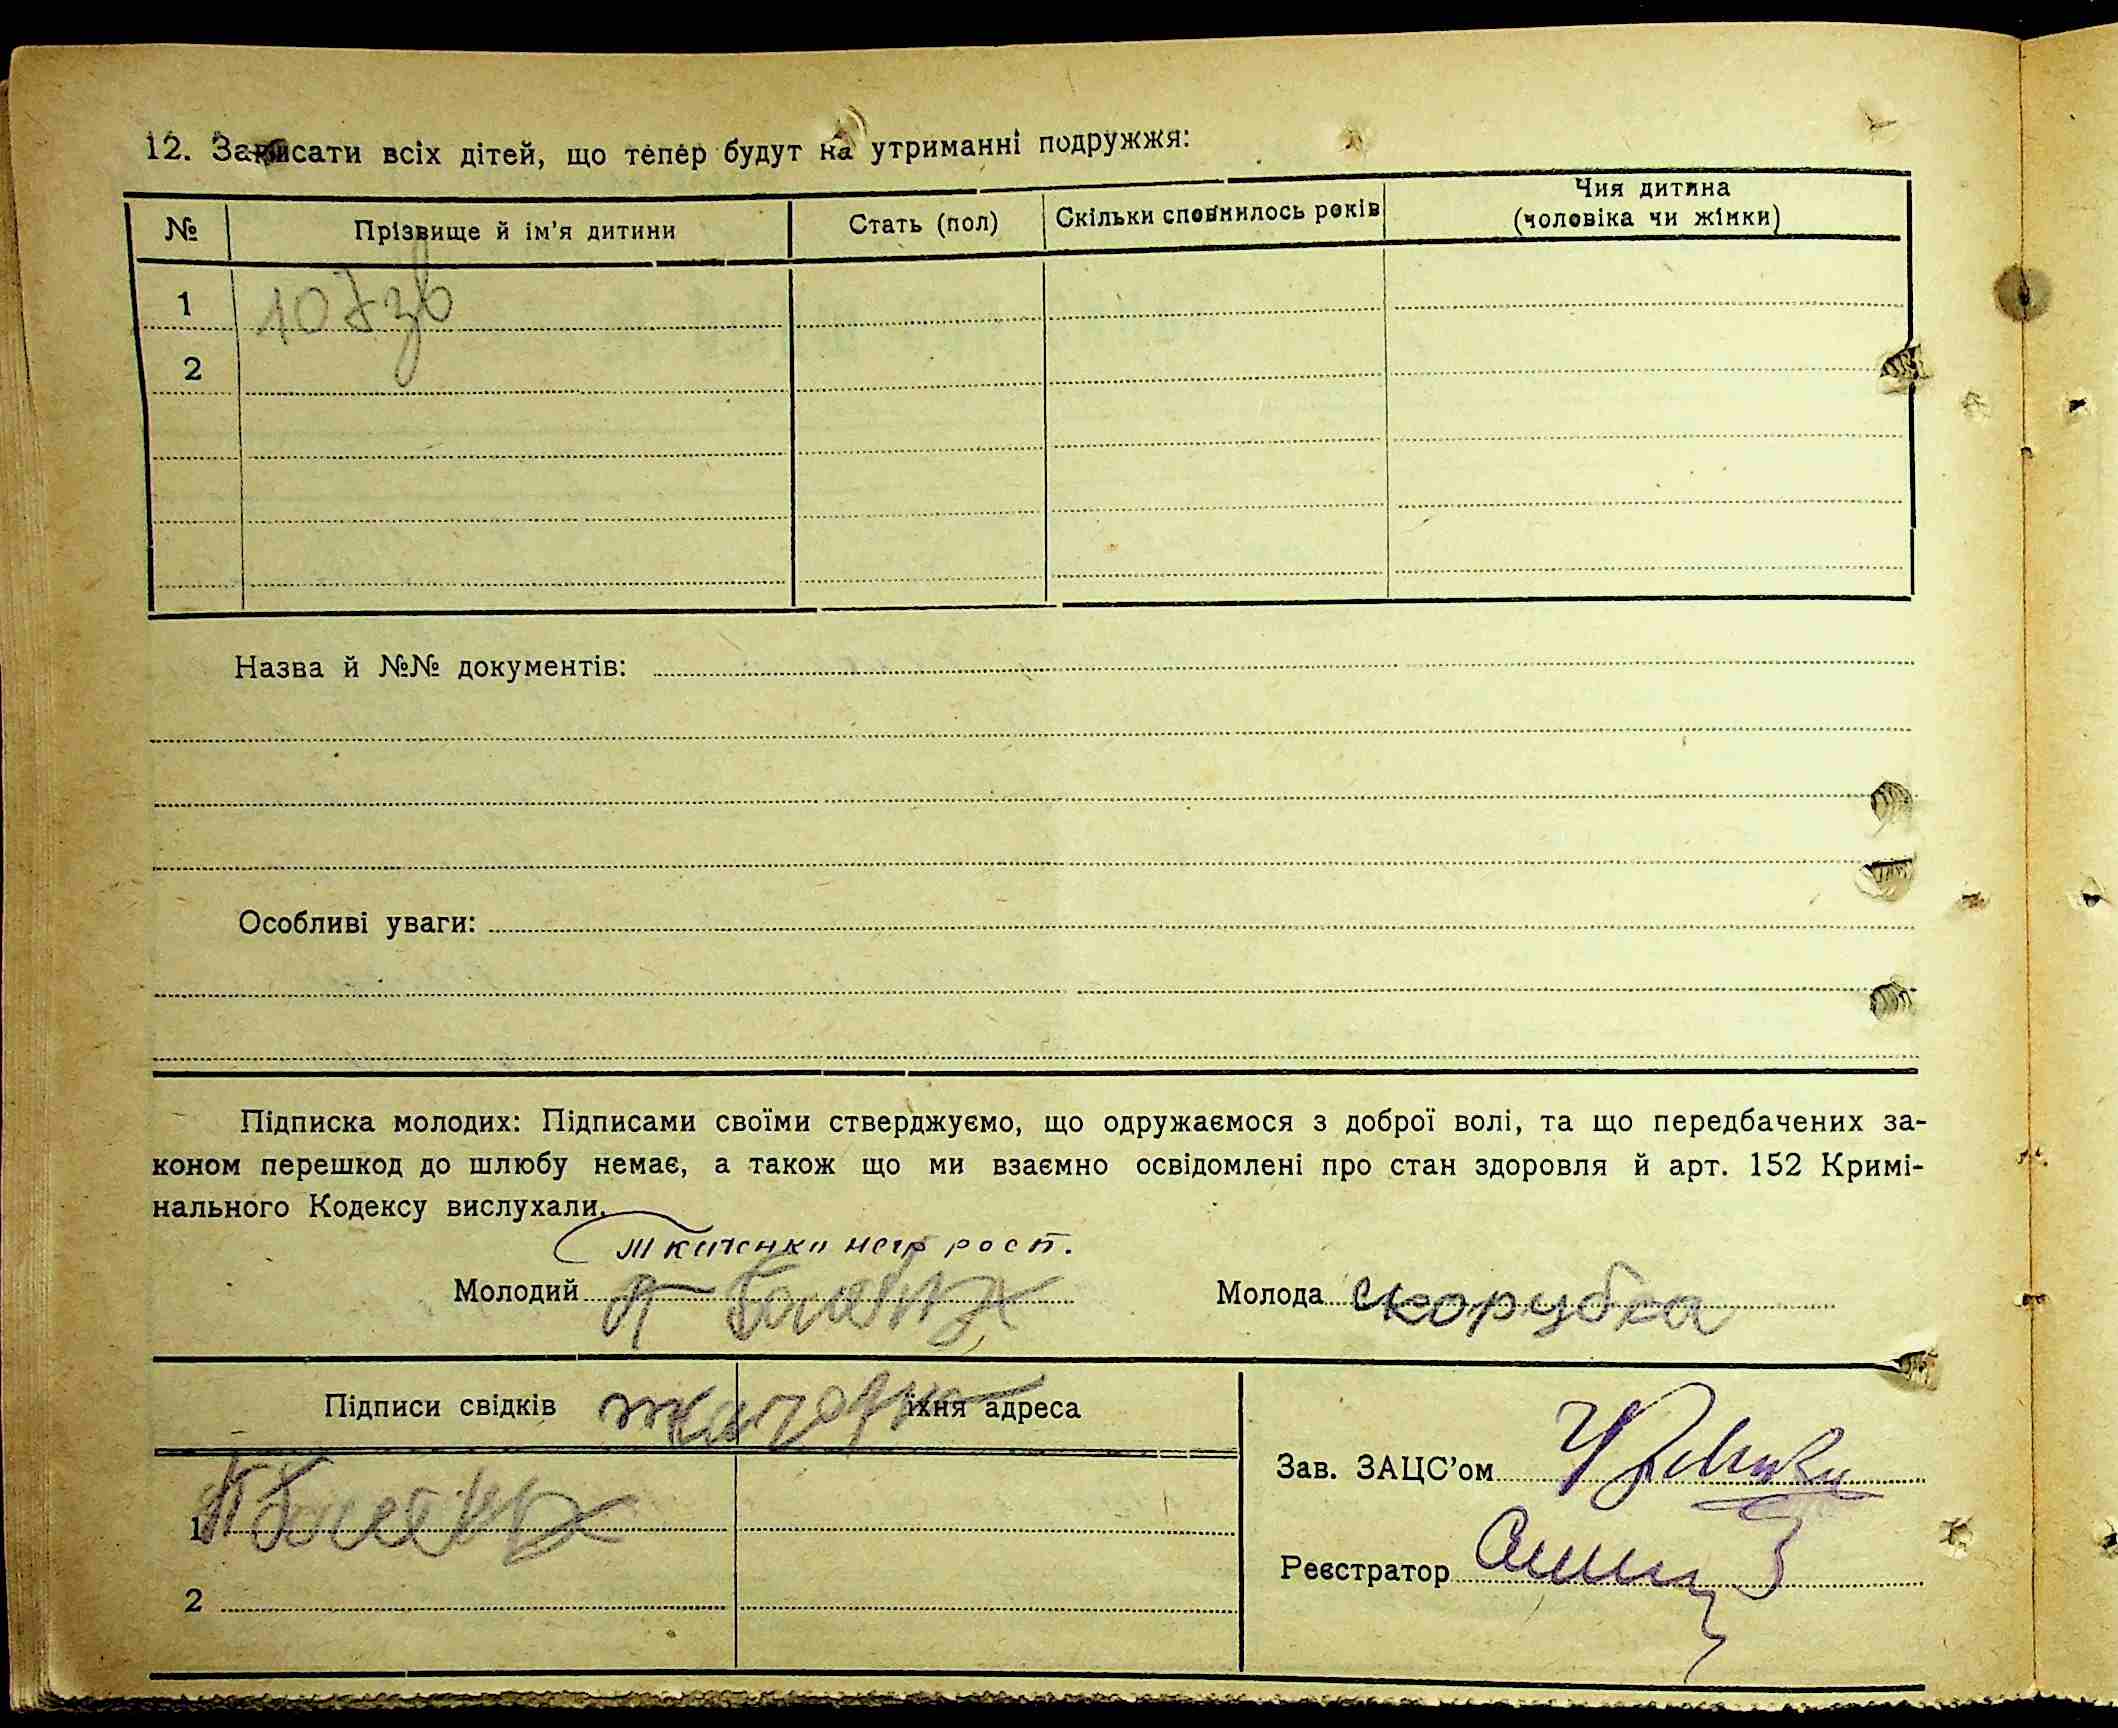 12. Записати всіх дітей, що тепер будут на утриманні подружжя:
№ Прізвище й ім'я дитини Стать (пол) Скільки сповнилось років Чия дитина (чоловіка чи жінки)
1 107зв
2
Назва й №№ документів:
Особливі уваги:
Підписка молодих: Підписами своїми стверджуємо, що одружаємося з доброї волі, та що передбачених за-
коном перешкод до шлюбу немає, а також що ми взаємно освідомлені про стан здоровля й арт. 152 Кримі-
нального Кодексу вислухали.
Ткаченко
Молодий
Молода Скорубка
Підписи свідків їхня адреса
Зав. ЗАЦС'ом
1
Реєстратор
2